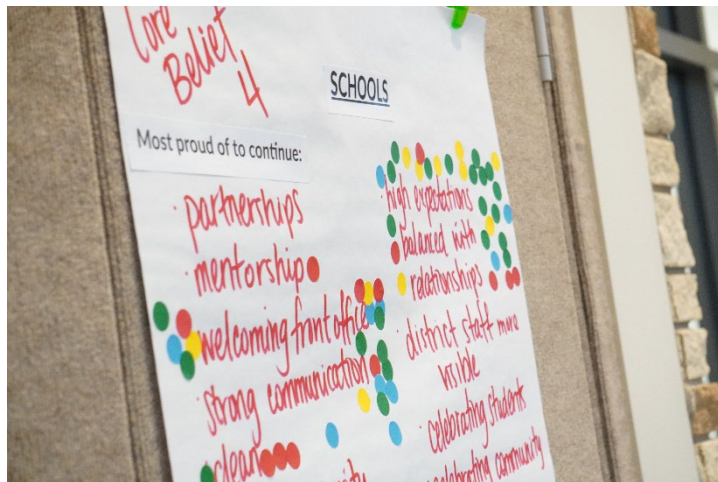 Core
Belief
4
SCHOOLS
Most proud of to continue:
· partnerships
· mentorship
· welcoming front office
· strong communication
· clean
· high expectations
balanced with
relationships
· district staff more
visible
· celebrating students
celebrating community